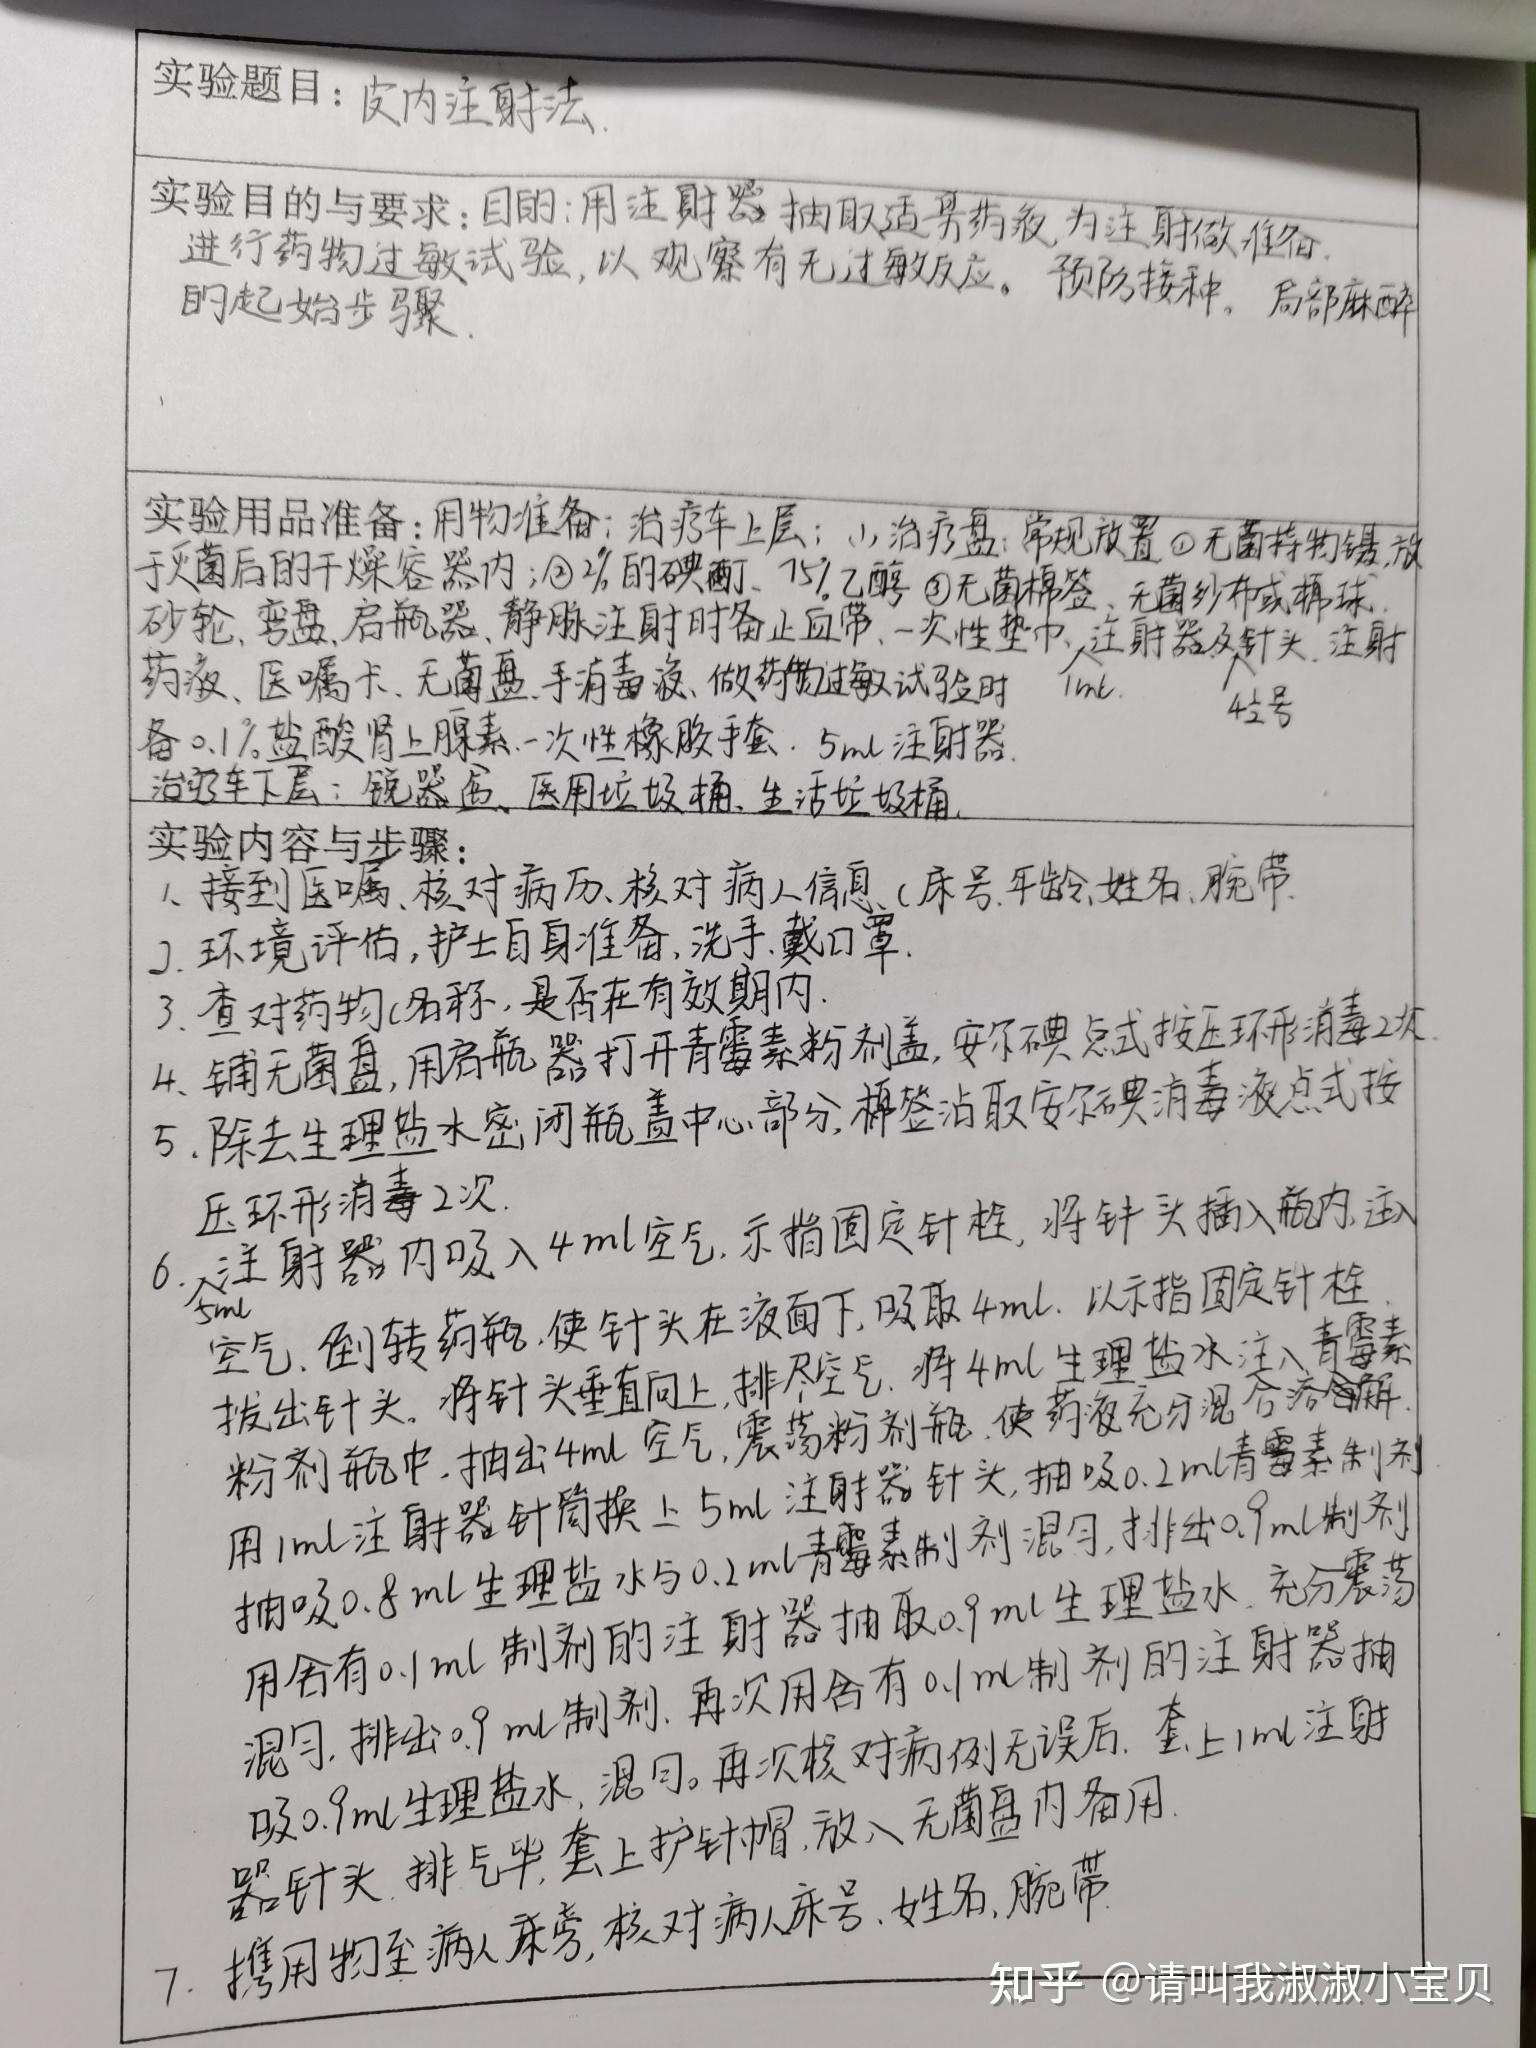 实验题目：皮内注射法.
实验目的与要求：目的：用注射器抽取适量药液,为注射做准备.
进行药物过敏试验,以观察有无过敏反应。预防接种。局部麻醉
的起始步骤.
实验用品准备：用物准备：治疗车上层：(1)治疗盘：常规放置①无菌持物镊,放
于灭菌后的干燥容器内；②2%的碘酊、75%乙醇③无菌棉签、无菌纱布或棉球.
砂轮、弯盘、启瓶器、静脉注射时备止血带、一次性垫巾、注射器及针头、注射
1ml.
4½号
药液、医嘱卡、无菌盘、手消毒液、做药物过敏试验时
备0.1%盐酸肾上腺素、一次性橡胶手套.5ml注射器.
治疗车下层：锐器盒、医用垃圾桶、生活垃圾桶.
实验内容与步骤：
1、接到医嘱、核对病历、核对病人信息、(床号、年龄、姓名、腕带.
2、环境评估,护士自身准备,洗手、戴口罩.
3、查对药物(名称,是否在有效期内.
4、铺无菌盘,用启瓶器打开青霉素粉剂盖,安尔碘点式按压环形消毒2次.
5、除去生理盐水密闭瓶盖中心部分,棉签沾取安尔碘消毒液点式按
压环形消毒2次.
6、注射器内吸入4ml空气,示指固定针栓,将针头插入瓶内,注入
5ml
空气、倒转药瓶,使针头在液面下,吸取4ml.以示指固定针栓.
拔出针头。将针头垂直向上,排尽空气.将4ml生理盐水注入青霉素
粉剂瓶中,抽出4ml空气,震荡粉剂瓶,使药液充分混合溶解.
用1ml注射器针筒换上5ml注射器针头,抽吸0.2ml青霉素制剂
抽吸0.8ml生理盐水与0.2ml青霉素制剂混匀,排出0.9ml制剂
用含有0.1ml制剂的注射器抽取0.9ml生理盐水.充分震荡
混匀,排出0.9ml制剂.再次用含有0.1ml制剂的注射器抽
吸0.9ml生理盐水,混匀。再次核对病例无误后.套上1ml注射
器针头.排气毕,套上护针帽,放入无菌盘内备用.
7.携用物至病人床旁,核对病人床号、姓名、腕带.
知乎 @请叫我淑淑小宝贝